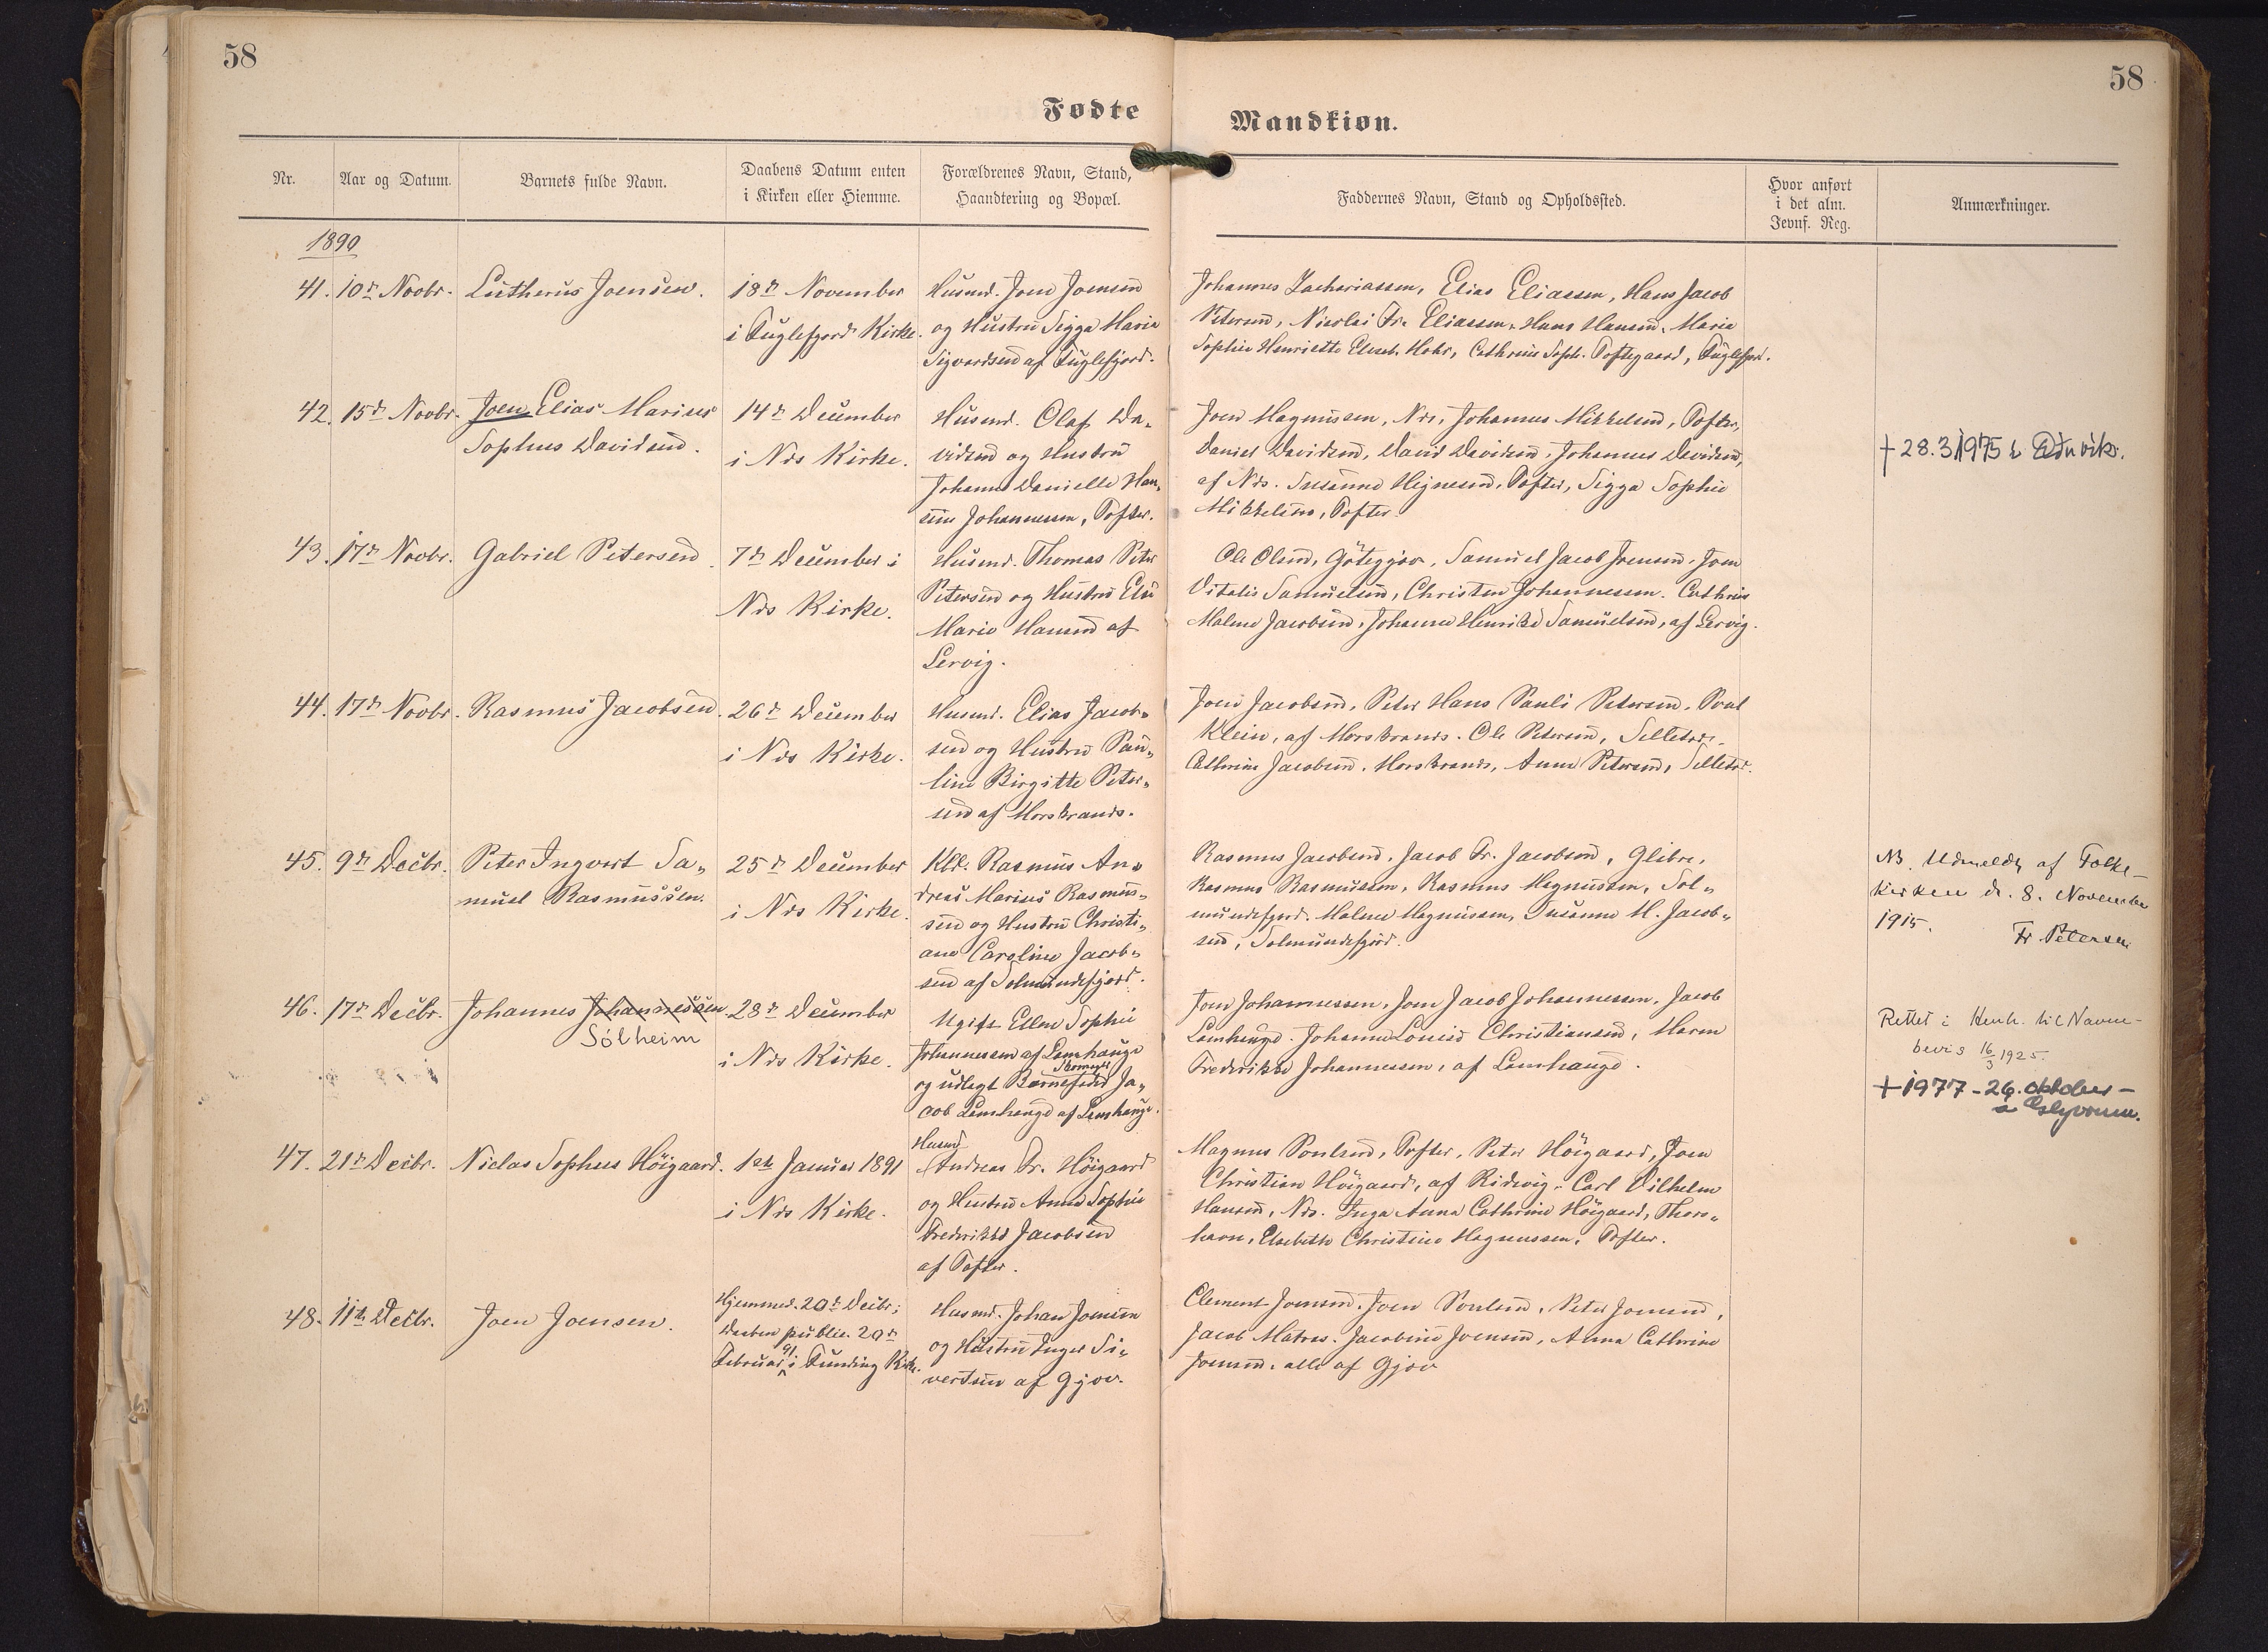 58
58
Fødte
Mandkiøn.
Nr.
Aar og Datum.
Barnets fulde Navn.
Daabens Datum enten
i Kirken eller Hiemme.
Forældrenes Navn, Stand,
Haandtering og Bopæl.
Faddernes Navn, Stand og Opholdssted.
Hvor anført
i det alm.
Jevnf. Reg.
Anmærkninger.
1890
41. 10de Novbr. Lutherus Joensen.
18de November
i Fuglefjord Kirke.
Husmd. Joen Joensen
og Hustru Sigga Maria
Sigvardsen af Fuglefjord.
Johannes Zachariassen, Elias Eliassen, Hans Jacob
Petersen, Nicolai Fr. Eliassen, Hans Hansen, Maria
Sophie Henriette Elisab. Hohr, Cathrine Soph. Toftegaard, Fuglefjord.
42. 15de Novbr. Joen Elias Marius
Sophus Davidsen.
14de December
i Næs Kirke.
Husmd. Olaf Da-
vidsen og Hustru
Johanne Danielle Han-
sine Johannesen, Tofter.
Joen Magnussen, Næs, Johannes Mikkelsen, Tofter,
Daniel Davidsen, David Davidsen, Johannes Davidsen,
af Næs. Susanne Hignesen, Tofter, Sigga Sophie
Mikkelsen, Tofter.
+ 28.3.1975
43. 17de Novbr. Gabriel Petersen.
7de December i
Næs Kirke.
Husmd. Thomas Peter
Petersen og Hustru Else
Marie Hansen af
Lervig.
Ole Olsen, Götegjov, Samuel Jacob Joensen, Joen
Vitalis Samuelsen, Christen Johannessen. Cathrine
Malene Jacobsen, Johanne Henrikke Samuelsen, af Lervig.
44. 17de Novbr. Rasmus Jacobsen.
26de December
i Næs Kirke.
Husmd. Elias Jacob-
sen og Hustru Pau-
line Birgitte Peter-
sen af Morskranes.
Joen Jacobsen, Peter Hans Pauli Petersen, Poul
Klein, af Morskranes. Ole Petersen, Selletræ,
Cathrine Jacobsen, Morskranes, Anne Petersen, Selletræ.
45. 9de Decbr. Peter Ingvert Sa-
muel Rasmussen.
25de December
i Næs Kirke.
Kbl. Rasmus An-
dreas Marius Rasmus-
sen og Hustru Christi-
ane Caroline Jacob-
sen af Solmundefjord.
Rasmus Jacobsen, Jacob Fr. Jacobsen, Glibre,
Rasmus Rasmussen, Rasmus Magnussen, Sol-
mundefjord. Malene Magnussen, Susanne M. Jacob-
sen, Solmundefjord.
NB. Udmeldt af Folke-
kirken d. 8. November
1915.
Fr. Petersen
46. 17de Decbr. Johannes Johannessen.
Sólheim
28de December
i Næs Kirke.
Ugift Ellen Sophie
Johannessen af Lamhauge
og udlagt Barnefader Ja-
cob Lamhauge af Lamhauge.
Joen Johannessen, Joen Jacob Johannessen, Jacob
Lamhauge. Johanne Louise Christiansen, Maren
Frederikke Johannessen, af Lamhauge.
Rettet i Henh. til Navne-
bevis 16/3 1925.
+ 1977 - 26. oktober -
á Glyvrum.
47. 21de Decbr. Niclas Sophus Höigaard.
1ste Januar 1891
i Næs Kirke.
Husmd
Andreas Fr. Höigaard
og Hustru Anne Sophie
Frederikke Jacobsen
af Tofter.
Magnus Poulsen, Tofter, Peter Höigaard, Joen
Christian Höigaard, af Ridevig. Carl Vilhelm
Hansen, Næs. Inga Anna Cathrine Höigaard, Thors-
havn, Elsebeth Christine Magnussen, Tofter.
48. 11te Decbr. Joen Joensen.
Hjemmed. 20de Decbr;
Daaben public. 20de
Februar 91 i Funding Kirke.
Husmd. Johan Joensen
og Hustru Inger Si-
vertsen af Gjov.
Clement Joensen, Joen Poulsen, Peter Joensen,
Jacob Matras. Jacobine Joensen, Anna Cathrine
Joensen, alle af Gjov